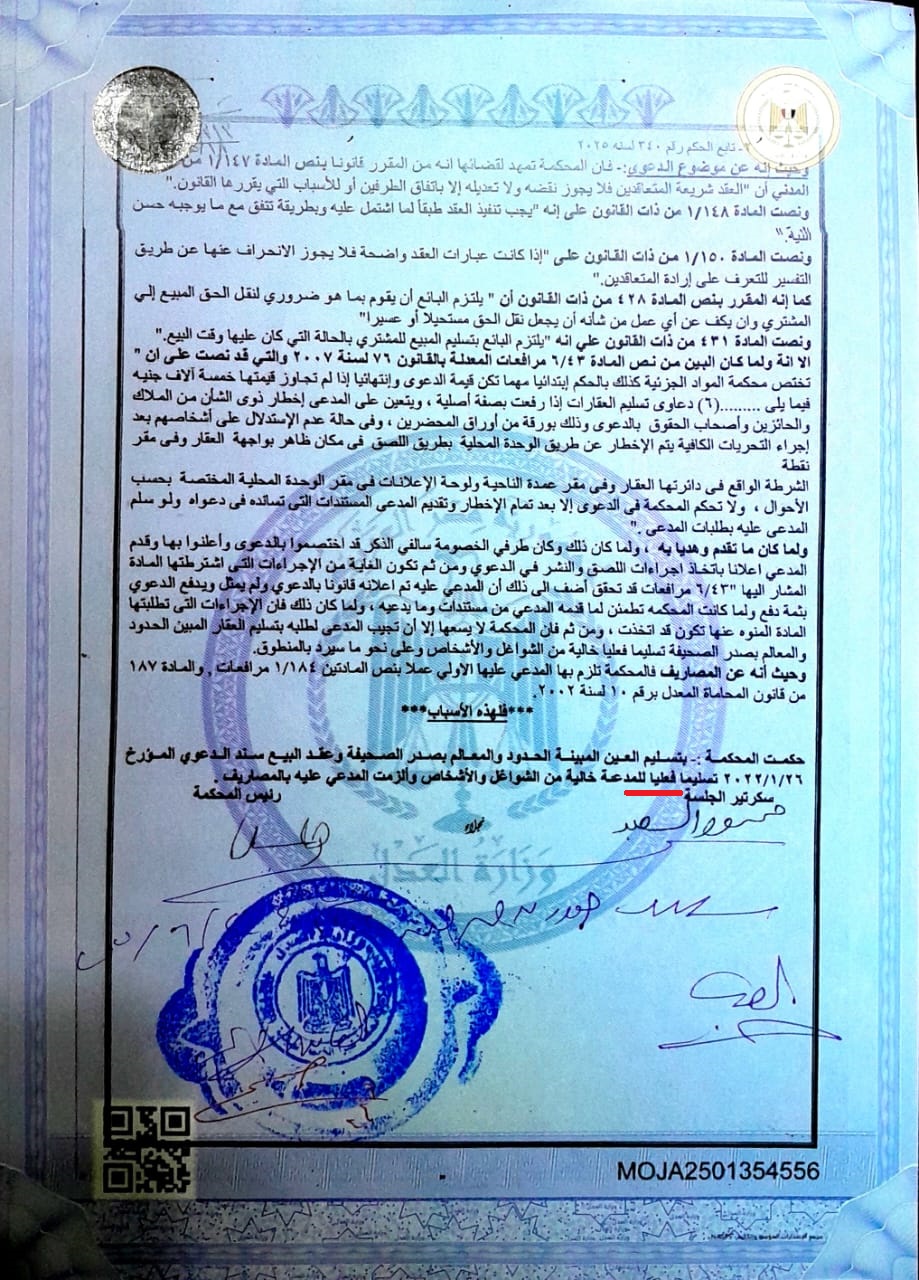 تابع الحكم رقم ٣٤٠ لسنه ٢٠٢٥
وحيث إنه عن موضوع الدعوي:- فان المحكمة تمهد لقضائها انه من المقرر قانونا بنص المادة ١/١٤٧ من
المدني أن "العقد شريعة المتعاقدين فلا يجوز نقضه ولا تعديله إلا باتفاق الطرفين أو للأسباب التي يقررها القانون."
ونصت المادة ١/١٤٨ من ذات القانون على إنه "يجب تنفيذ العقد طبقاً لما اشتمل عليه وبطريقة تتفق مع ما يوجبه حسن
النية."
ونصت المادة ١/١٥٠ من ذات القانون على "إذا كانت عبارات العقد واضحة فلا يجوز الانحراف عنها عن طريق
التفسير للتعرف على إرادة المتعاقدين."
كما إنه المقرر بنص المادة ٤٢٨ من ذات القانون أن " يلتزم البائع أن يقوم بما هو ضروري لنقل الحق المبيع إلي
المشتري وان يكف عن أي عمل من شأنه أن يجعل نقل الحق مستحيلا أو عسيرا"
ونصت المادة ٤٣١ من ذات القانون علي انه "يلتزم البائع بتسليم المبيع للمشتري بالحالة التي كان عليها وقت البيع."
الا انة ولما كان البين من نص المادة ٦/٤٣ مرافعات المعدلة بالقانون ٧٦ لسنة ٢٠٠٧ والتي قد نصت على ان "
تختص محكمة المواد الجزئية كذلك بالحكم إبتدائيا مهما تكن قيمة الدعوى وإنتهائيا إذا لم تجاوز قيمتها خمسة آلاف جنيه
فيما يلى .........(٦) دعاوى تسليم العقارات إذا رفعت بصفة أصلية ، ويتعين على المدعى إخطار ذوى الشان من الملاك
والحائزين وأصحاب الحقوق بالدعوى وذلك بورقة من أوراق المحضرين ، وفى حالة عدم الإستدلال على أشخاصهم بعد
إجراء التحريات الكافية يتم الإخطار عن طريق الوحدة المحلية بطريق اللصق فى مكان ظاهر بواجهة العقار وفى مقر
نقطة
الشرطة الواقع فى دائرتها العقار وفى مقر عمدة الناحية ولوحة الإعلانات فى مقر الوحدة المحلية المختصة بحسب
الأحوال ، ولا تحكم المحكمة فى الدعوى إلا بعد تمام الإخطار وتقديم المدعى المستندات التى تسانده فى دعواه ولو سلم
المدعى عليه بطلبات المدعى ."
ولما كان ما تقدم وهديا به ، ولما كان ذلك وكان طرفي الخصومة سالفي الذكر قد اختصموا بالدعوى وأعلنوا بها وقدم
المدعي اعلانا باتخاذ اجراءات اللصق والنشر في الدعوي ومن ثم تكون الغاية من الإجراءات التى اشترطتها المادة
المشار اليها "٦/٤٣ مرافعات قد تحقق أضف الى ذلك أن المدعي عليه تم اعلانه قانونا بالدعوي ولم يمثل ويدفع الدعوي
بثمة دفع ولما كانت المحكمه تطمئن لما قدمه المدعي من مستندات وما يدعيه ، ولما كان ذلك فان الإجراءات التى تطلبتها
المادة المنوه عنها تكون قد اتخذت ، ومن ثم فان المحكمة لا يسعها إلا أن تجيب المدعى لطلبه بتسليم العقار المبين الحدود
والمعالم بصدر الصحيفة تسليما فعليا خالية من الشواغل والأشخاص وعلى نحو ما سيرد بالمنطوق.
وحيث أنه عن المصاريف فالمحكمة تلزم بها المدعي عليها الاولي عملا بنص المادتين ١/١٨٤ مرافعات , والمادة ١٨٧
من قانون المحاماة المعدل برقم ١٠ لسنة ٢٠٠٢.
***فلهذه الأسباب***
حكمت المحكمة :- بتسليم العين المبينة الحدود والمعالم بصدر الصحيفة وعقد البيع سند الدعوي المؤرخ
٢٠٢٢/١/٢٦ تسليما فعليا للمدعة خالية من الشواغل والأشخاص وألزمت المدعي عليه بالمصاريف .
سكرتير الجلسة رئيس المحكمة
نجلاء
وزارة العدل
MOJA2501354556